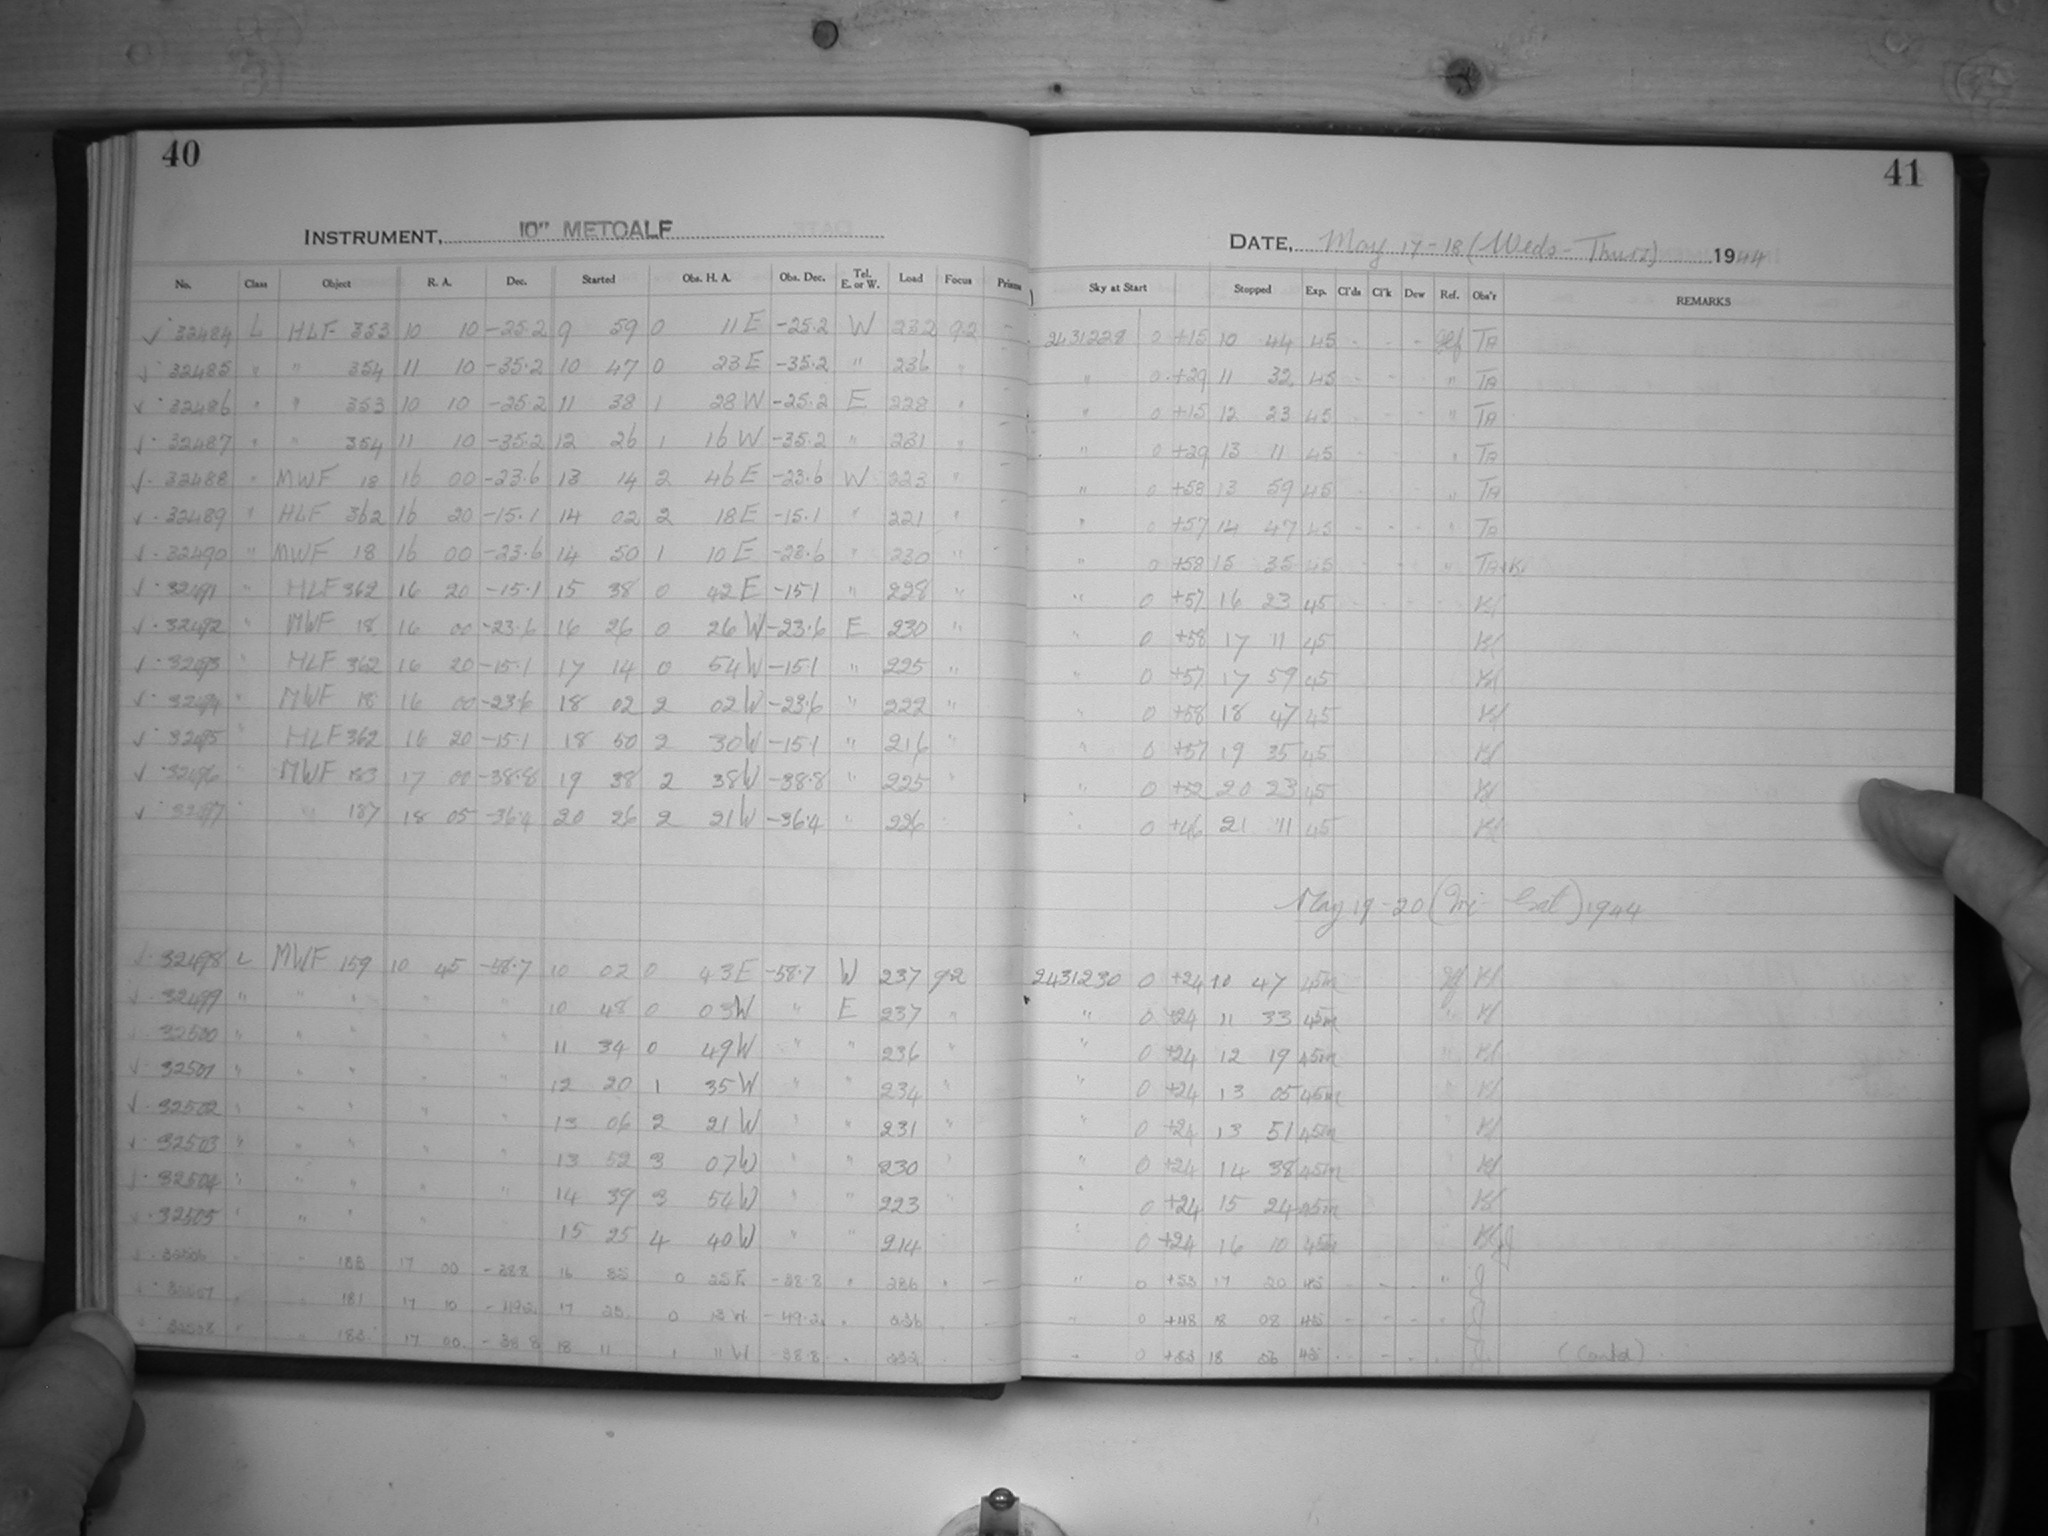 40
INSTRUMENT, 10" METCALF
No. Class Object R. A. Dec. Started Obs. H. A. Obs. Dec. Tel. E. or W. Load Focus Prism
√ 32484 L HLF 353 10 10 -25.2 9 59 0 11 E -25.2 W 232 92 -
√ 32485 " " 354 11 10 -35.2 10 47 0 23 E -35.2 " 236 "
√ 32486 " " 353 10 10 -25.2 11 38 1 28 W -25.2 E 228 "
√ 32487 " " 354 11 10 -35.2 12 26 1 16 W -35.2 " 231 "
√ 32488 " MWF 18 16 00 -23.6 13 14 2 46 E -23.6 W 223 "
√ 32489 " HLF 362 16 20 -15.1 14 02 2 18 E -15.1 " 221 "
√ 32490 " MWF 18 16 00 -23.6 14 50 1 10 E -23.6 " 230 "
√ 32491 " HLF 362 16 20 -15.1 15 38 0 42 E -15.1 " 228 "
√ 32492 " MWF 18 16 00 -23.6 16 26 0 26 W -23.6 E 230 "
√ 32493 " HLF 362 16 20 -15.1 17 14 0 54 W -15.1 " 225 "
√ 32494 " MWF 18 16 00 -23.6 18 02 2 02 W -23.6 " 222 "
√ 32495 " HLF 362 16 20 -15.1 18 50 2 30 W -15.1 " 216 "
√ 32496 " MWF 183 17 00 -38.8 19 38 2 38 W -38.8 " 225 "
√ 32497 " 187 18 05 -36.4 20 26 2 21 W -36.4 " 226
√ 32498 L MWF 159 10 45 -58.7 10 02 0 43 E -58.7 W 237 92
√ 32499 " " " " " 10 48 0 03 W " E 237 "
√ 32500 " " " " " 11 34 0 49 W " " 236 "
√ 32501 " " " " " 12 20 1 35 W " " 234 "
√ 32502 " " " " " 13 06 2 21 W " " 231 "
√ 32503 " " " " " 13 52 3 07 W " " 230 "
√ 32504 " " " " " 14 39 3 54 W " " 223 "
√ 32505 " " " " 15 25 4 40 W " " 214
√ 32506 " " 183 17 00 -38.8 16 35 0 25 E -38.8 " 236 " -
√ 32507 " " 181 17 10 -49.2 17 23 0 13 W -49.2 " 236
√ 32508 " " 183 17 00 -38.8 18 11 1 11 W 38.8 " 232
41
DATE, May 17-18 (Weds-Thurs) 1944
Sky at Start Stopped Exp. Cl'ds Cl'k Dew Ref. Obs'r REMARKS
2431228 0 +15 10 44 45 - - - TB
" 0 +29 11 32 45 - - " TB
" 0 +15 12 23 45 - - " TB
" 0 +29 13 11 45 - - " TB
" 0 +58 13 59 45 - - " TB
" 0 +57 14 47 45 - - - " TB
" 0 +58 15 35 45 - - - "
" 0 +57 16 23 45
" 0 +58 17 11 45
" 0 +57 17 59 45
" 0 +58 18 47 45
" 0 +57 19 35 45
" 0 +52 20 23 45
" 0 +46 21 11 45
May 19-20 (Fri - Sat) 1944
2431230 0 +24 10 47 45m
" 0 +24 11 33 45m "
" 0 +24 12 19 45m "
" 0 +24 13 05 45m
" 0 +24 13 51 45m
" 0 +24 14 38 45m
" 0 +24 15 24 45m
" 0 +24 16 10 45m
" 0 +53 17 20 45 - - "
" 0 +48 18 08 45 - - -
" 0 +53 18 56 45 - - - (Contd)